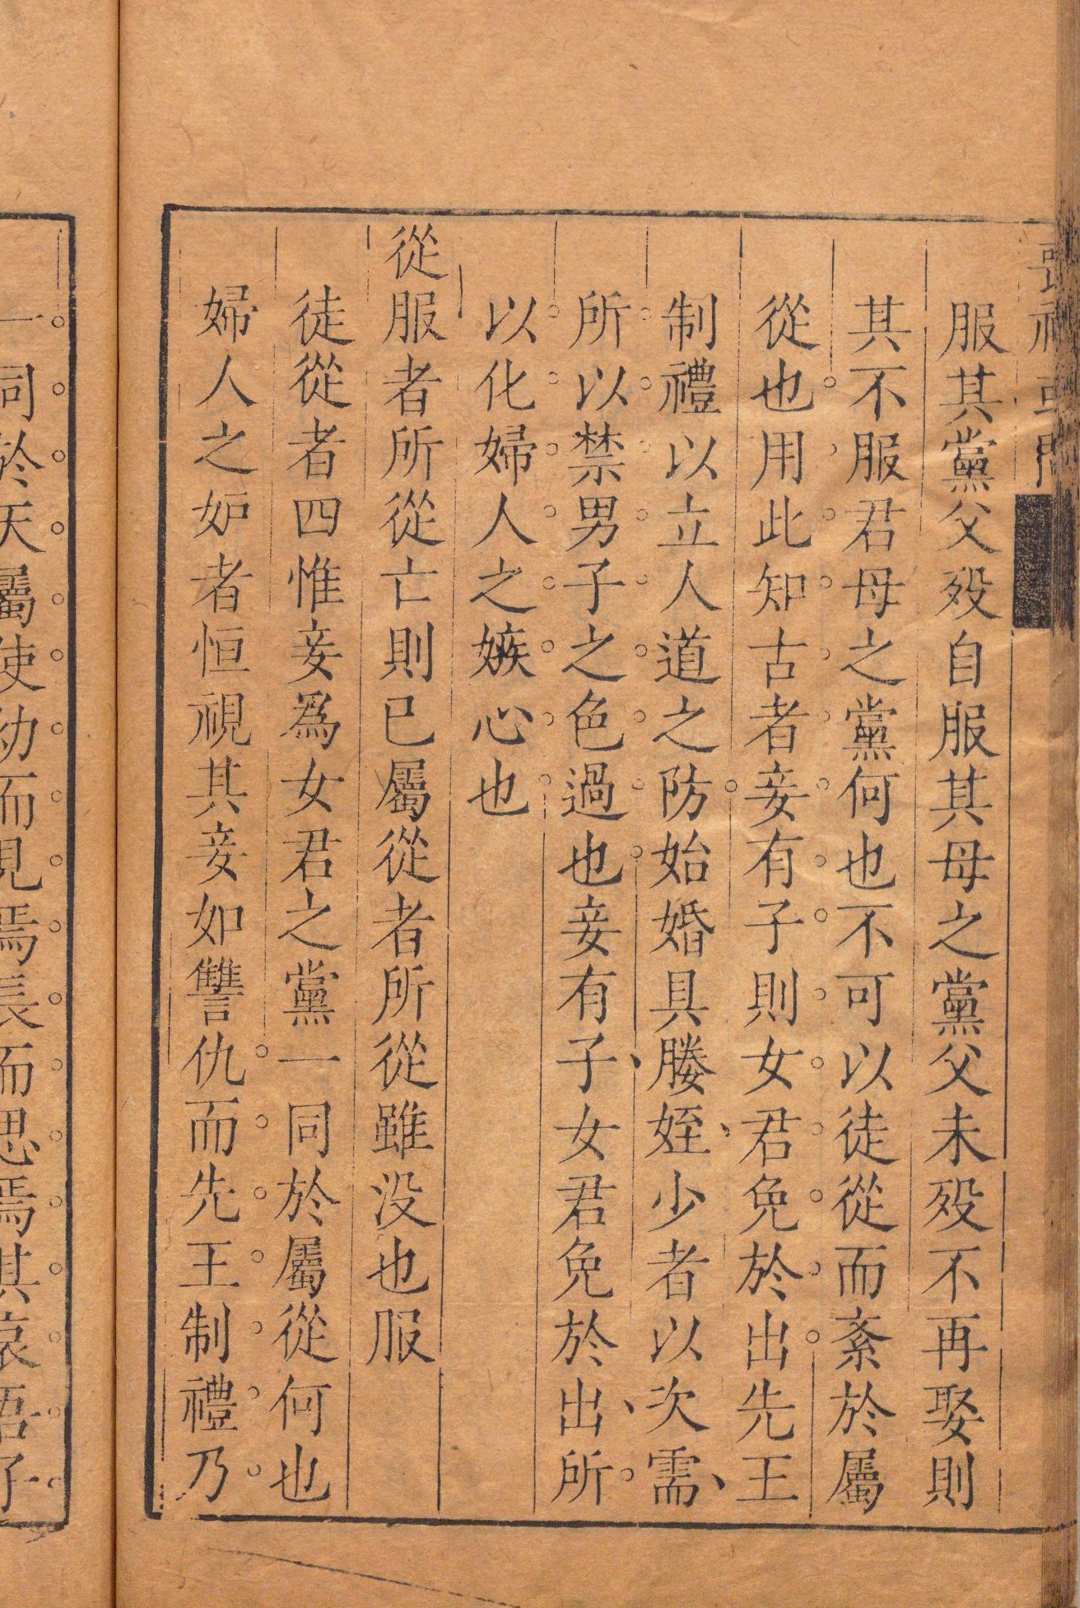 喪禮或問
服其黨父歿自服其母之黨父未歿不再娶則
其不服君母之黨何也不可以徒從而紊於屬
從也用此知古者妾有子則女君免於出先王
制禮以立人道之防始婚具媵姪少者以次需
所以禁男子之色過也妾有子女君免於出所
以化婦人之嫉心也
從服者所從亡則已屬從者所從雖没也服
徒從者四惟妾爲女君之黨一同於屬從何也
婦人之妒者恒視其妾如讐仇而先王制禮乃
一同於天屬使幼而見焉長而思焉其哀吾子